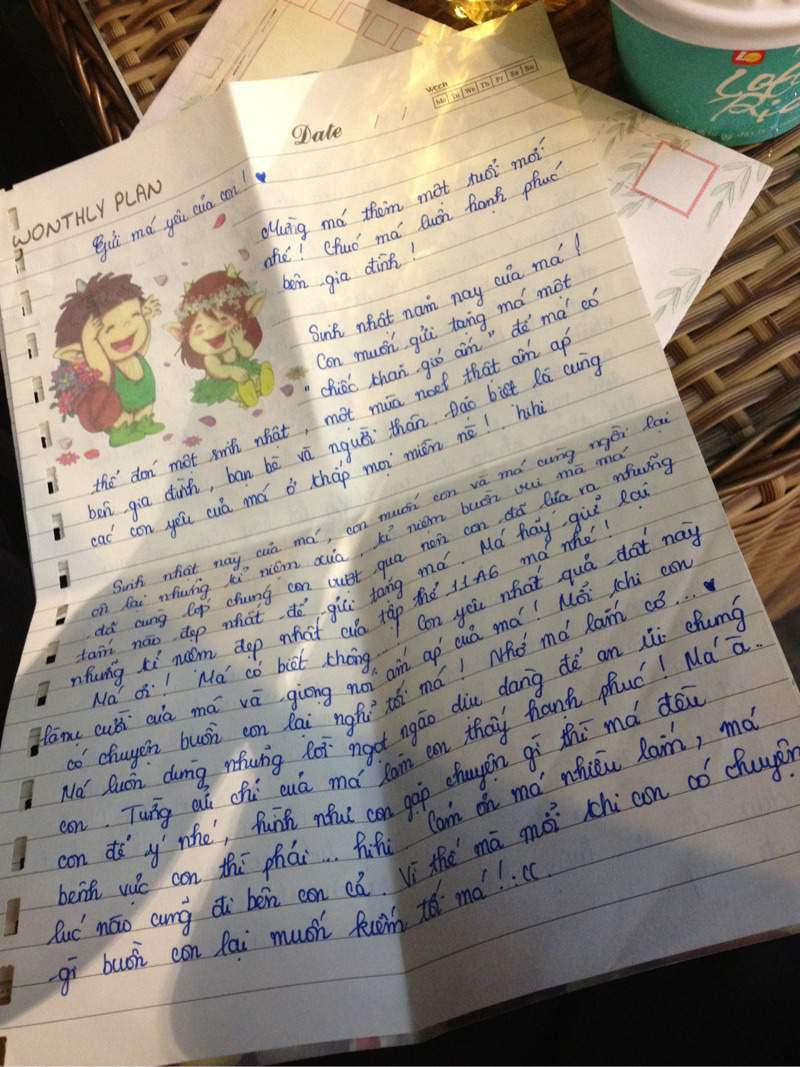 Week
Mo Tu We Th Fr Sa Su
Date / /
WONTHLY PLAN
Gửi má yêu của con!
Mừng má thêm một tuổi mới
nhé! Chúc má luôn hạnh phúc
bên gia đình!
Sinh nhật năm nay của má!
Con muốn gửi tặng má một
"chiếc khăn gió ấm" để má có
thể đón một sinh nhật, một mùa noel thật ấm áp
bên gia đình, bạn bè và người thân. Đặc biệt là cùng
các con yêu của má ở khắp mọi miền nè! hihi
Sinh nhật này của má, con muốn con và má cùng ngồi lại
ôn lại những kỉ niệm xưa, kỉ niệm buồn vui mà má
đã cùng lớp chúng con vượt qua nên con đã lựa ra những
tấm nào đẹp nhất để gửi tặng má. Má hãy giữ lại
những kỉ niệm đẹp nhất của tập thể 11A6 má nhé!
Má ơi! Má có biết không... Con yêu nhất quả đất này
là nụ cười của má và giọng nói ấm áp của má! Mỗi khi con
có chuyện buồn con lại nghĩ tới má! Nhớ má lắm cơ...
Má luôn dùng những lời ngọt ngào dịu dàng để an ủi chúng
con. Từng cử chỉ của má làm con thấy hạnh phúc! Má à..
con để ý nhé, hình như con gặp chuyện gì thì má đều
bênh vực con thì phải... hihi. Cảm ơn má nhiều lắm, má
lúc nào cũng đi bên con cả. Vì thế mà mỗi khi con có chuyện
gì buồn con lại muốn kiếm tới má!.cc.